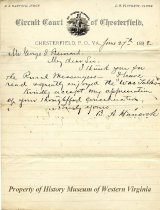 B. A. HANCOCK, JUDGE
Circuit Court of Chesterfield,
CHESTERFIELD, P. O. VA. June 27th 189
Mr. George S. Bernard
My dear Sir,
I thank you for
the Rural Messenger. I have
read & greatly enjoyed the "War Talks"
Kindly accept my appreciation
of your thoughtful
Truly yours
B. A. Hancock
Property of History Museum of Western Virginia